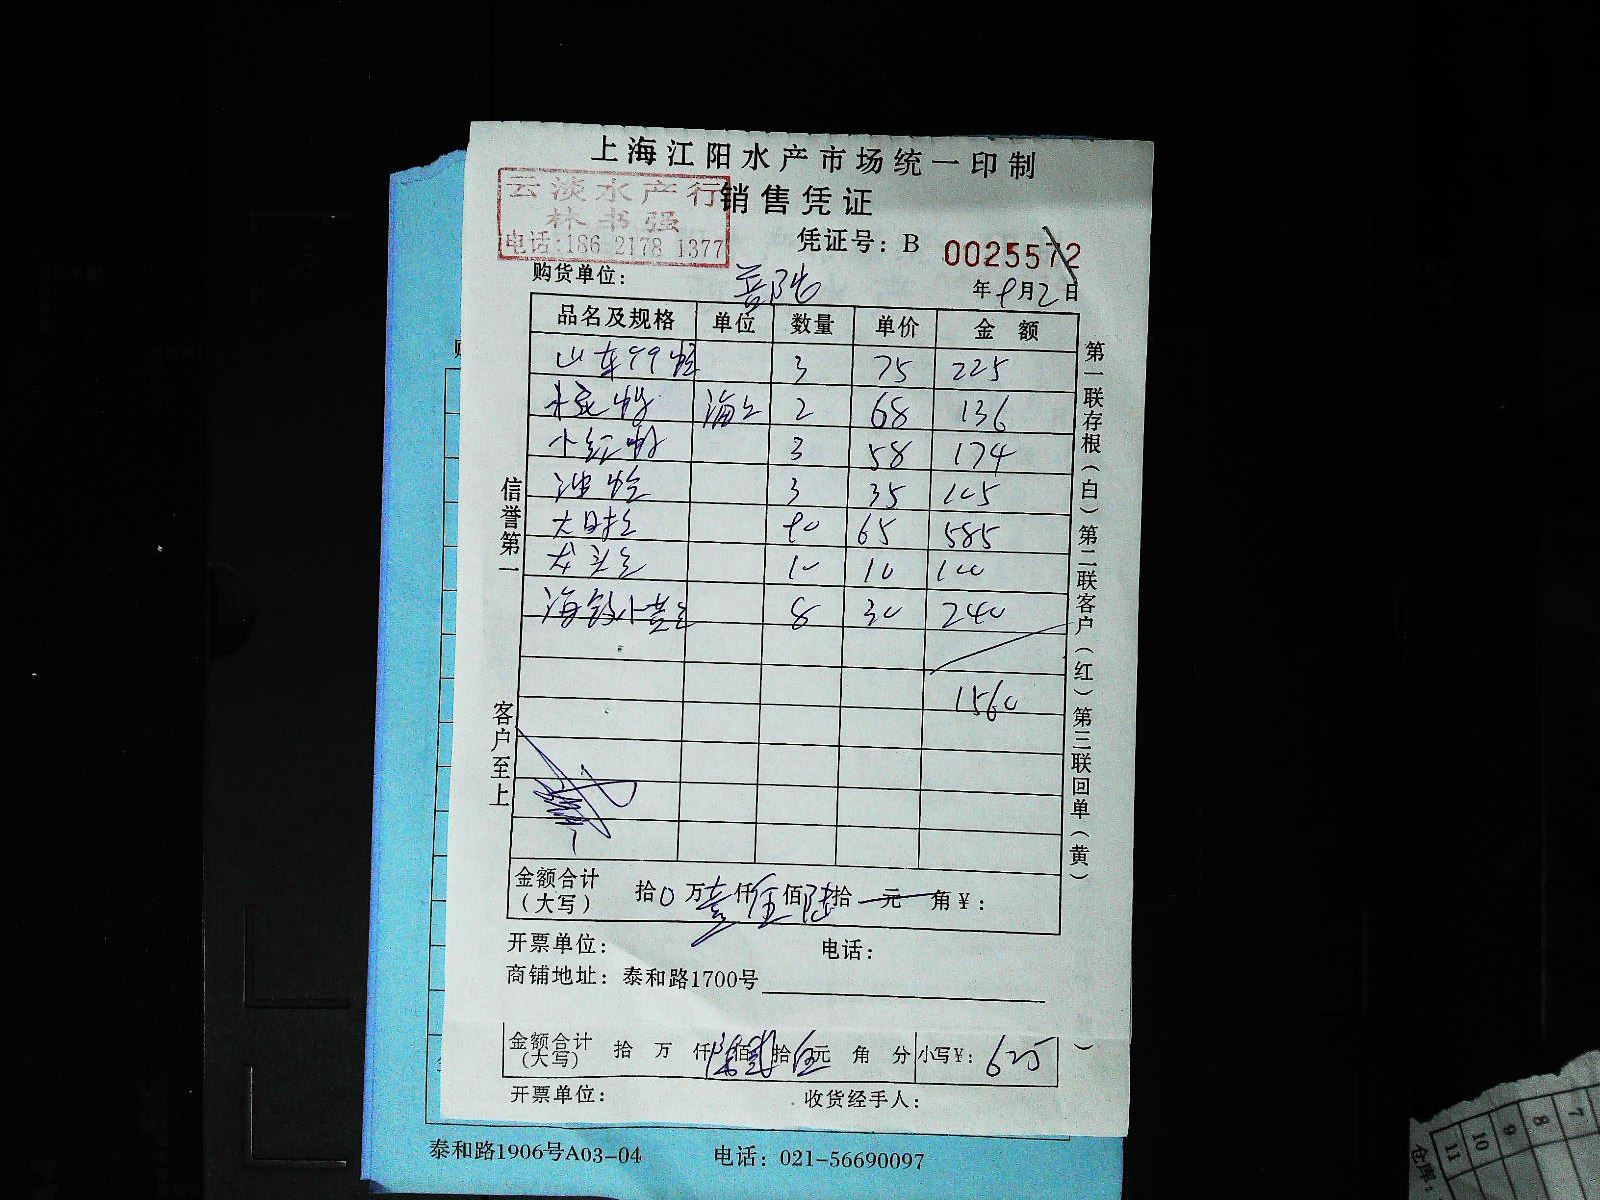 上海江阳水产市场统一印制
销售凭证
云淡水产行
林书强
电话:186 2178 1377
凭证号：B 0025572
购货单位：
年9月2日
品名及规格 单位 数量 单价 金额
山东99蛤 3 75 225
2 68 136
小红虾 3 58 174
油蛤 3 35 105
90 65 585
10 10 100
8 30 240
1560
信誉第一
客户至上
第一联存根（白）第二联客户（红）第三联回单（黄）
金额合计（大写） 拾0万壹仟伍佰陆拾元 角￥：
开票单位： 电话：
商铺地址：泰和路1700号
金额合计（大写） 拾 万 仟陆佰贰拾伍元 角 分 小写￥：625
开票单位： 收货经手人：
泰和路1906号A03-04 电话：021-56690097
仓库：
11 10 9 8 7